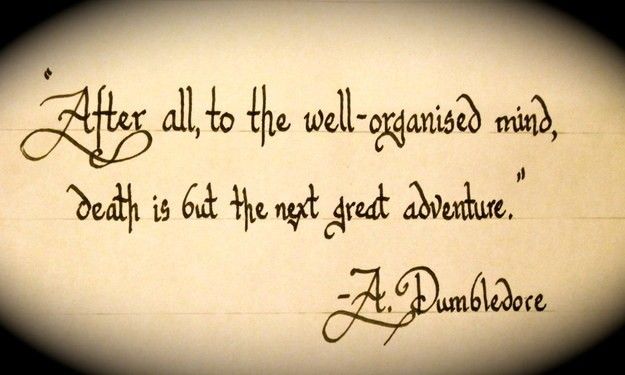 "After all, to the well-organised mind,
death is but the next great adventure."
-A. Dumbledore